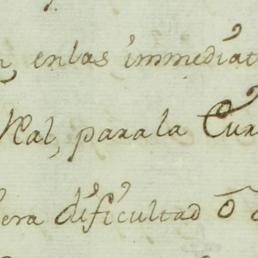 en las immediat
Real, para la Cur
era dificultad ô